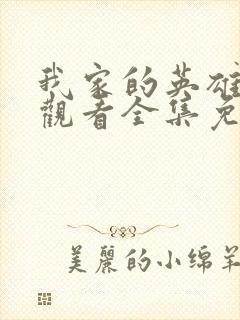 我家的英雄
觀看全集免
美麗的小绵羊